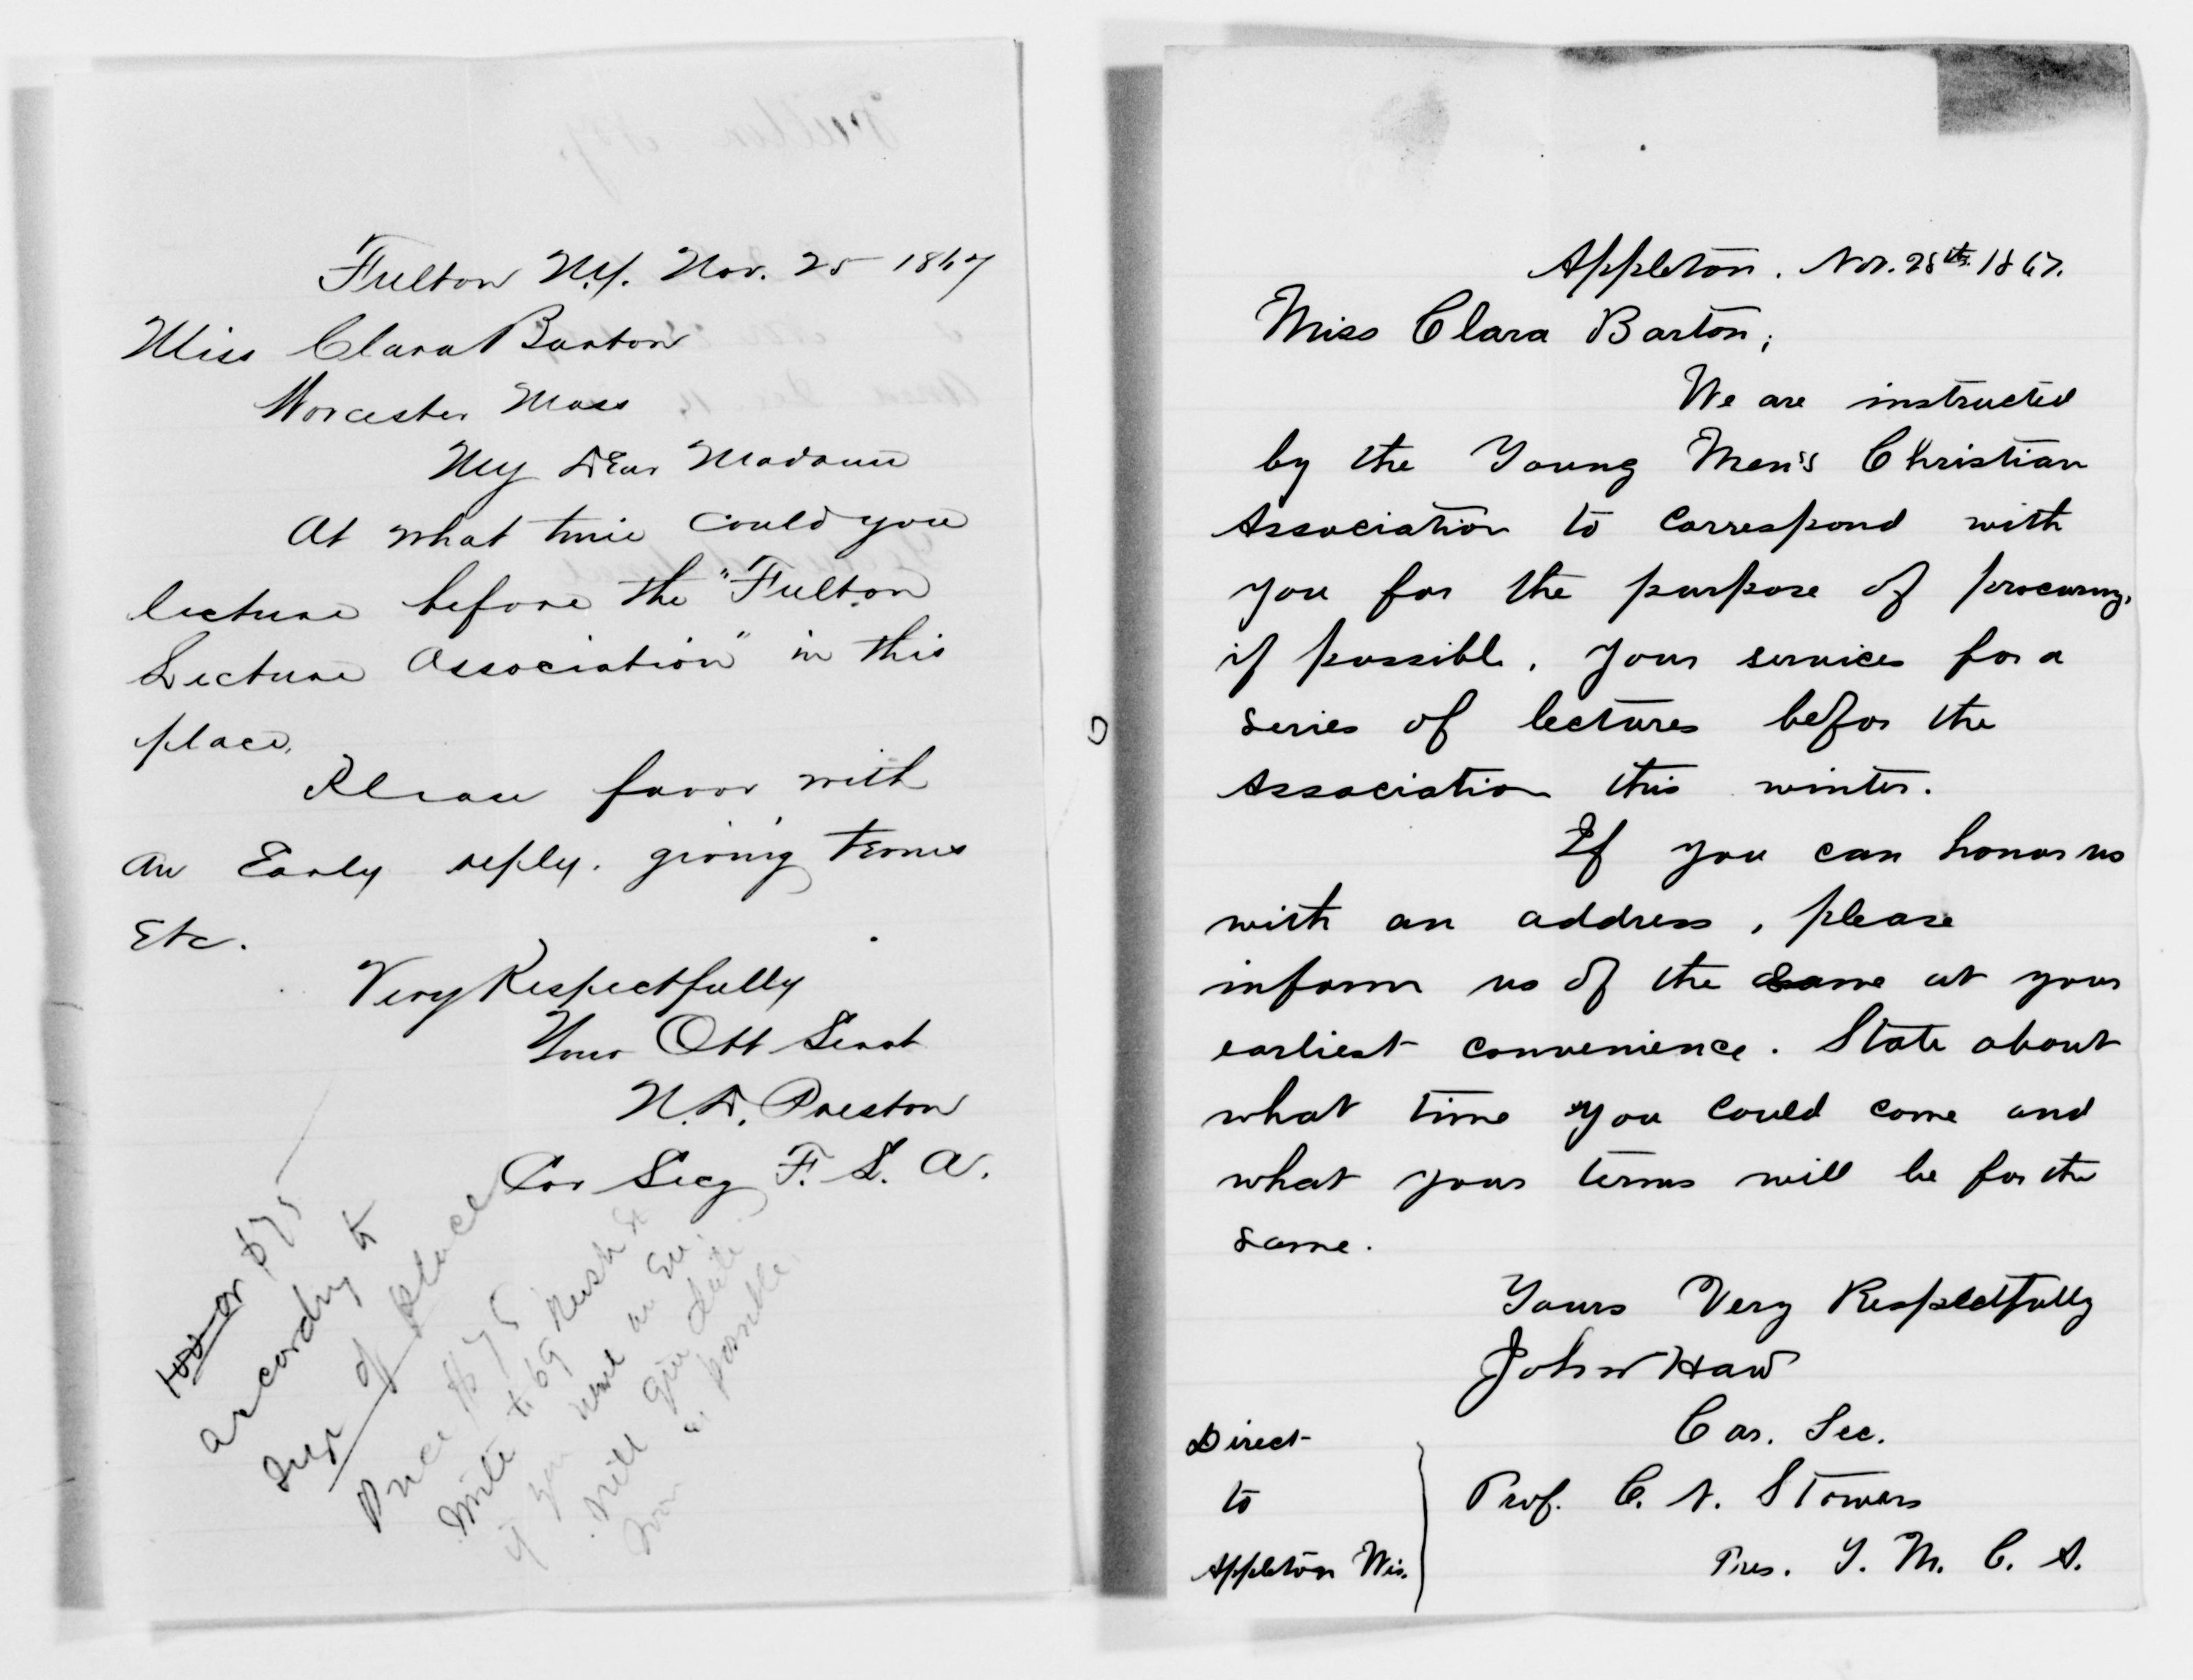 Fulton N.Y. Nov. 25 1867
Miss Clara Barton
Worcester Mass
My Dear Madam
At what time could you
lecture before the "Fulton
Lecture Association" in this
place.
Please favor with
an Early reply. giving terms
Etc.
Very Respectfully
Your Obt Servt
N. D. Preston
Cor Secy F. L. A.
100 or $75
according to
of place
Price $75
Write to 69
if you want an
will give date
if possible
Appleton. Nov. 28th 1867.
Miss Clara Barton;
We are instructed
by the Young Men's Christian
Association to correspond with
you for the purpose of procuring,
if possible, your services for a
series of lectures befor the
Association this winter.
If you can honor us
with an address, please
inform us of the same at your
earliest convenience. State about
what time you could come and
what your terms will be for the
same.
Yours Very Respectfully
John Haw
Cor. Sec.
Direct
to
Appleton Wis.
Prof. C. N. Stowers
Pres. Y. M. C. A.